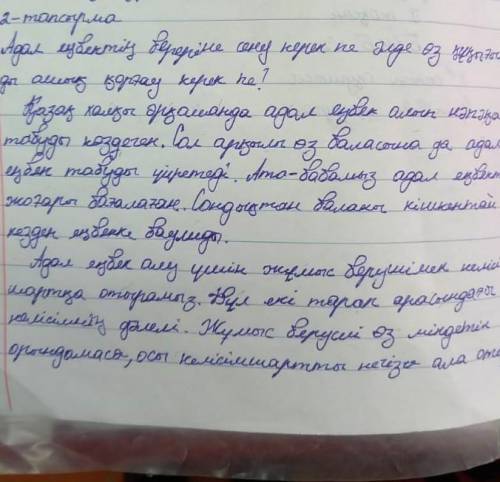 2-тапсырма
Адал еңбектің берерiне сену керек пе әлде өз құқығы
ды ашық қорғау керек пе?
Қазақ халқы әрқашанда адал еңбек алып нәпақа
табуды көздеген. Сол арқылы өз баласына да адал
еңбек табуды үйретеді. Ата-бабамыз адал еңбект
жоғары бағалаған. Сондықтан баланы кішкентай
кезден еңбекке баулиды.
Адал еңбек алу үшін жұмыс берушімен келіс
шартқа отырамыз. Бұл екі тарап арасындағы
келісімнің дәлелі. Жұмыс беруші өз міндетін
орындамаса, осы келісімшартты негізге ала оты